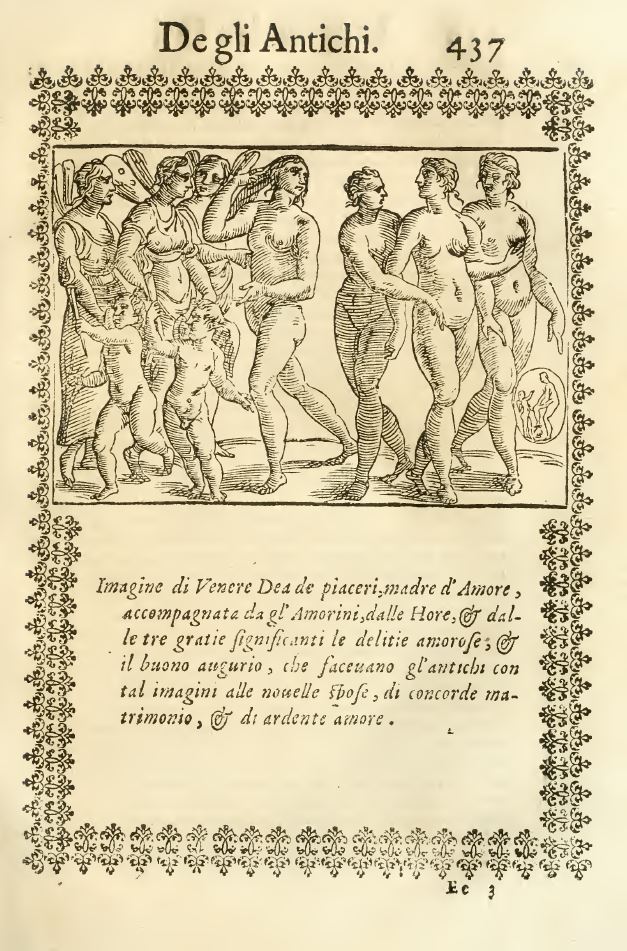 De gli Antichi. 437
Imagine di Venere Dea de piaceri, madre d'Amore,
accompagnata da gl' Amorini, dalle Hore, & dal-
le tre gratie ſignificanti le delitie amoroſe; &
il buono augurio, che faceuano gl'antichi con
tal imagini alle nouelle ſpoſe, di concorde ma-
trimonio, & di ardente amore.
Ee 3